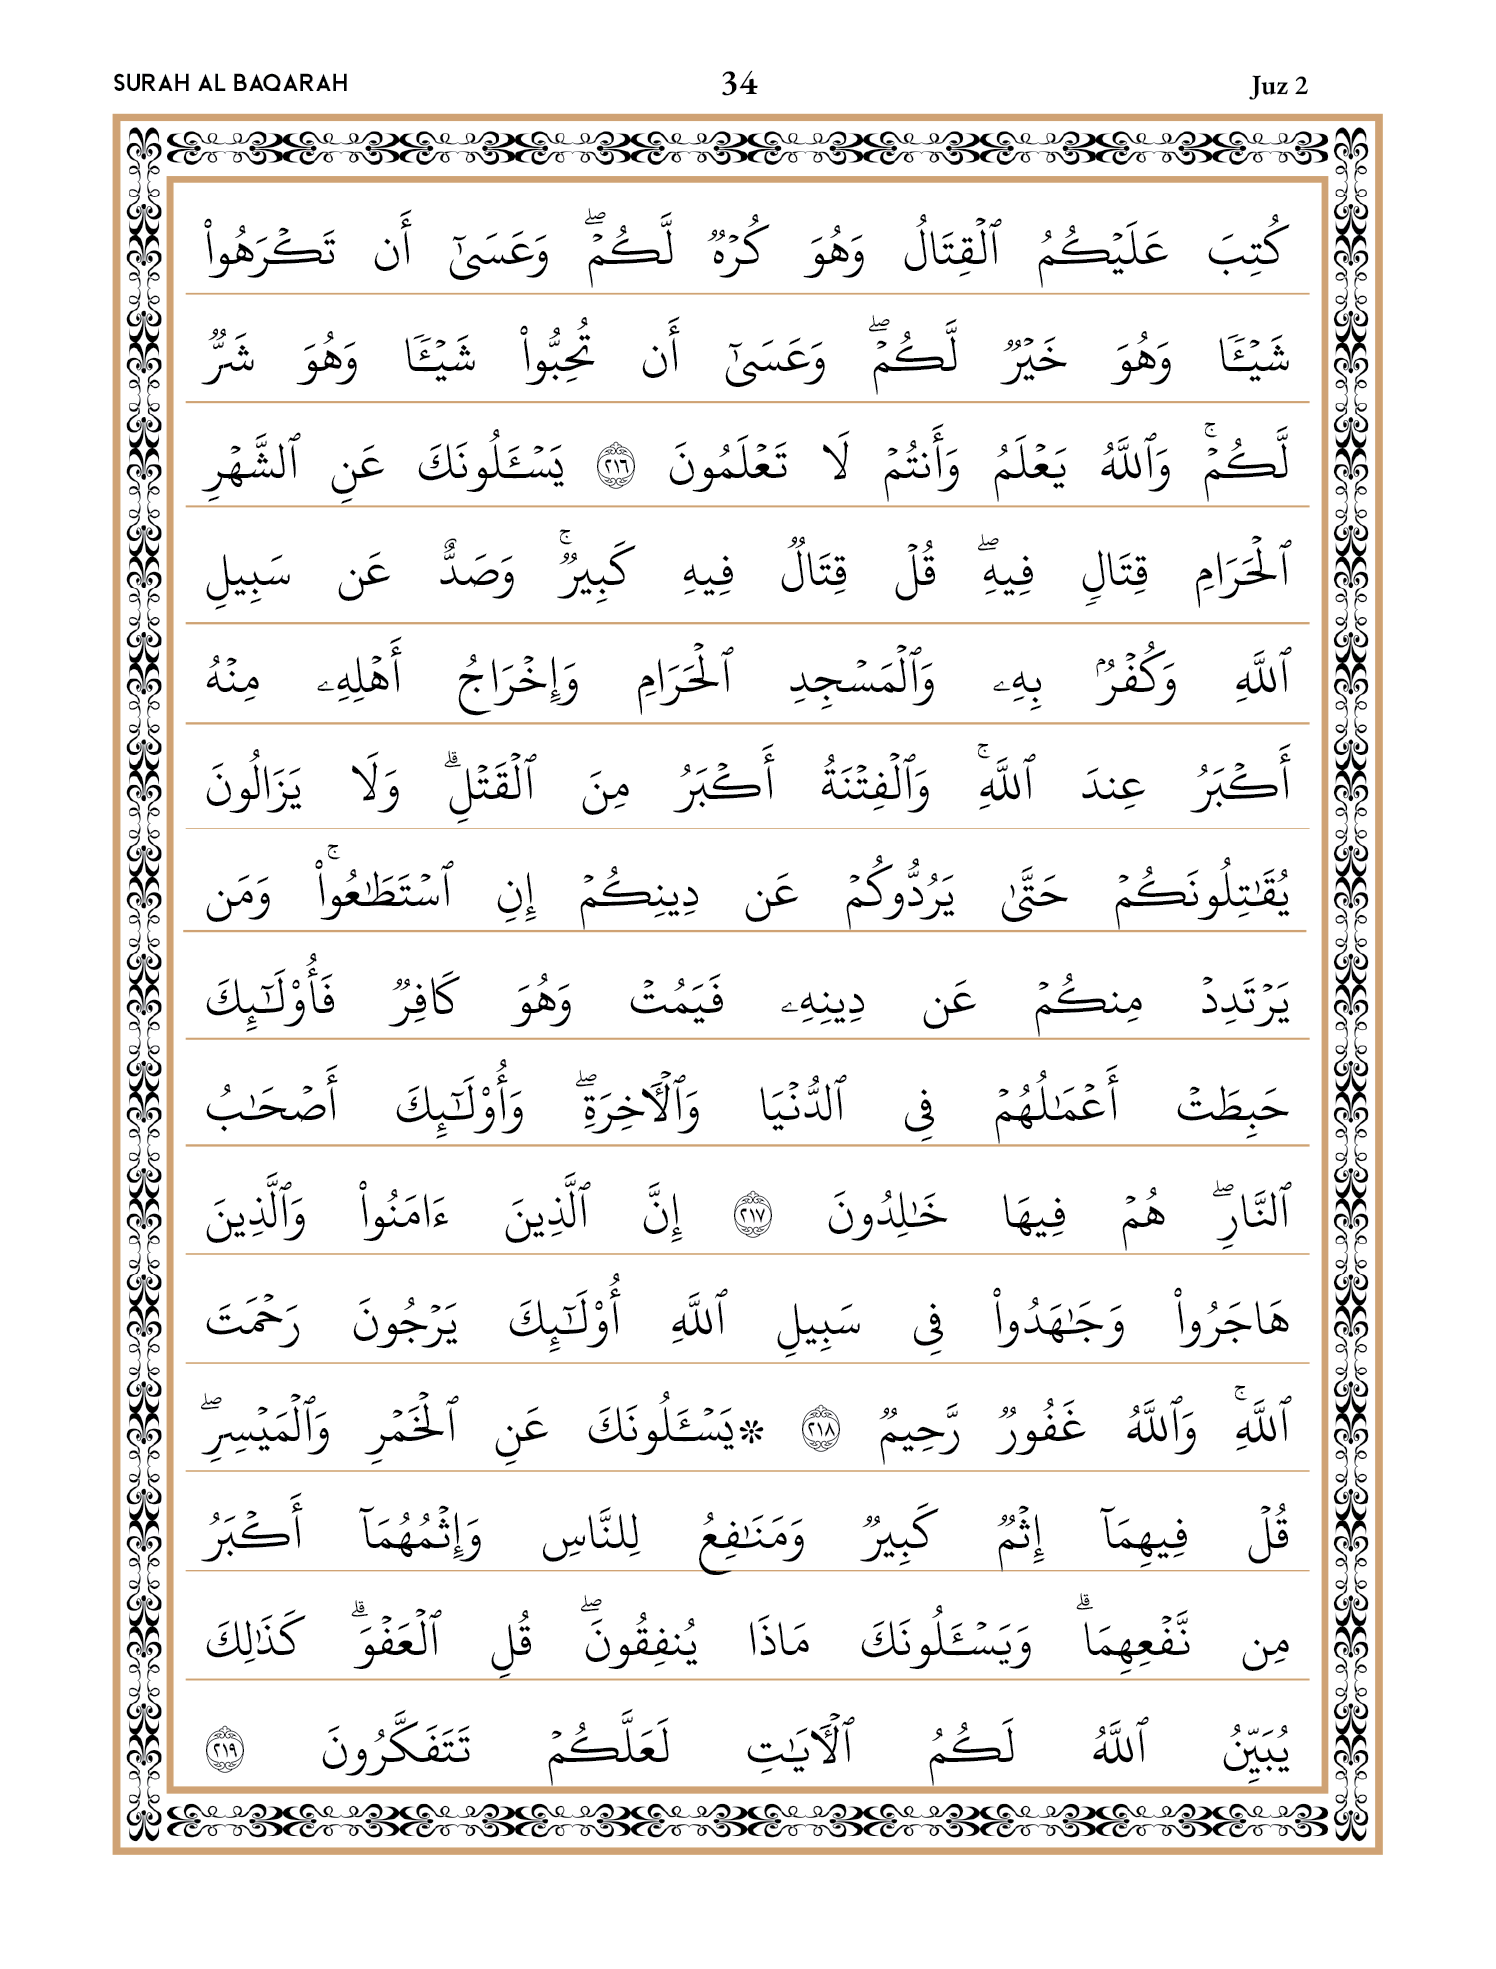 SURAH AL BAQARAH 34 Juz 2
كُتِبَ عَلَيۡكُمُ ٱلۡقِتَالُ وَهُوَ كُرۡهٞ لَّكُمۡۖ وَعَسَىٰٓ أَن تَكۡرَهُواْ
شَيۡـٔٗا وَهُوَ خَيۡرٞ لَّكُمۡۖ وَعَسَىٰٓ أَن تُحِبُّواْ شَيۡـٔٗا وَهُوَ شَرّٞ
لَّكُمۡۚ وَٱللَّهُ يَعۡلَمُ وَأَنتُمۡ لَا تَعۡلَمُونَ ٢١٦ يَسۡـَٔلُونَكَ عَنِ ٱلشَّهۡرِ
ٱلۡحَرَامِ قِتَالٖ فِيهِۖ قُلۡ قِتَالٞ فِيهِ كَبِيرٞۚ وَصَدٌّ عَن سَبِيلِ
ٱللَّهِ وَكُفۡرُۢ بِهِۦ وَٱلۡمَسۡجِدِ ٱلۡحَرَامِ وَإِخۡرَاجُ أَهۡلِهِۦ مِنۡهُ
أَكۡبَرُ عِندَ ٱللَّهِۚ وَٱلۡفِتۡنَةُ أَكۡبَرُ مِنَ ٱلۡقَتۡلِۗ وَلَا يَزَالُونَ
يُقَٰتِلُونَكُمۡ حَتَّىٰ يَرُدُّوكُمۡ عَن دِينِكُمۡ إِنِ ٱسۡتَطَٰعُواْۚ وَمَن
يَرۡتَدِدۡ مِنكُمۡ عَن دِينِهِۦ فَيَمُتۡ وَهُوَ كَافِرٞ فَأُوْلَٰٓئِكَ
حَبِطَتۡ أَعۡمَٰلُهُمۡ فِي ٱلدُّنۡيَا وَٱلۡأٓخِرَةِۖ وَأُوْلَٰٓئِكَ أَصۡحَٰبُ
ٱلنَّارِۖ هُمۡ فِيهَا خَٰلِدُونَ ٢١٧ إِنَّ ٱلَّذِينَ ءَامَنُواْ وَٱلَّذِينَ
هَاجَرُواْ وَجَٰهَدُواْ فِي سَبِيلِ ٱللَّهِ أُوْلَٰٓئِكَ يَرۡجُونَ رَحۡمَتَ
ٱللَّهِۚ وَٱللَّهُ غَفُورٞ رَّحِيمٞ ٢١٨ ۞يَسۡـَٔلُونَكَ عَنِ ٱلۡخَمۡرِ وَٱلۡمَيۡسِرِۖ
قُلۡ فِيهِمَآ إِثۡمٞ كَبِيرٞ وَمَنَٰفِعُ لِلنَّاسِ وَإِثۡمُهُمَآ أَكۡبَرُ
مِن نَّفۡعِهِمَاۗ وَيَسۡـَٔلُونَكَ مَاذَا يُنفِقُونَۖ قُلِ ٱلۡعَفۡوَۗ كَذَٰلِكَ
يُبَيِّنُ ٱللَّهُ لَكُمُ ٱلۡأٓيَٰتِ لَعَلَّكُمۡ تَتَفَكَّرُونَ ٢١٩